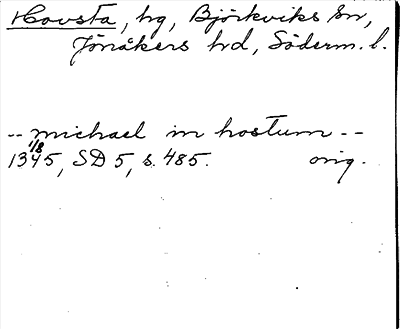 Hovsta, hg, Björkviks sn,
Jönåkers hd, Söderm. l.
-- michael in hostum --
1345 1/8, SD 5, s. 485. orig.